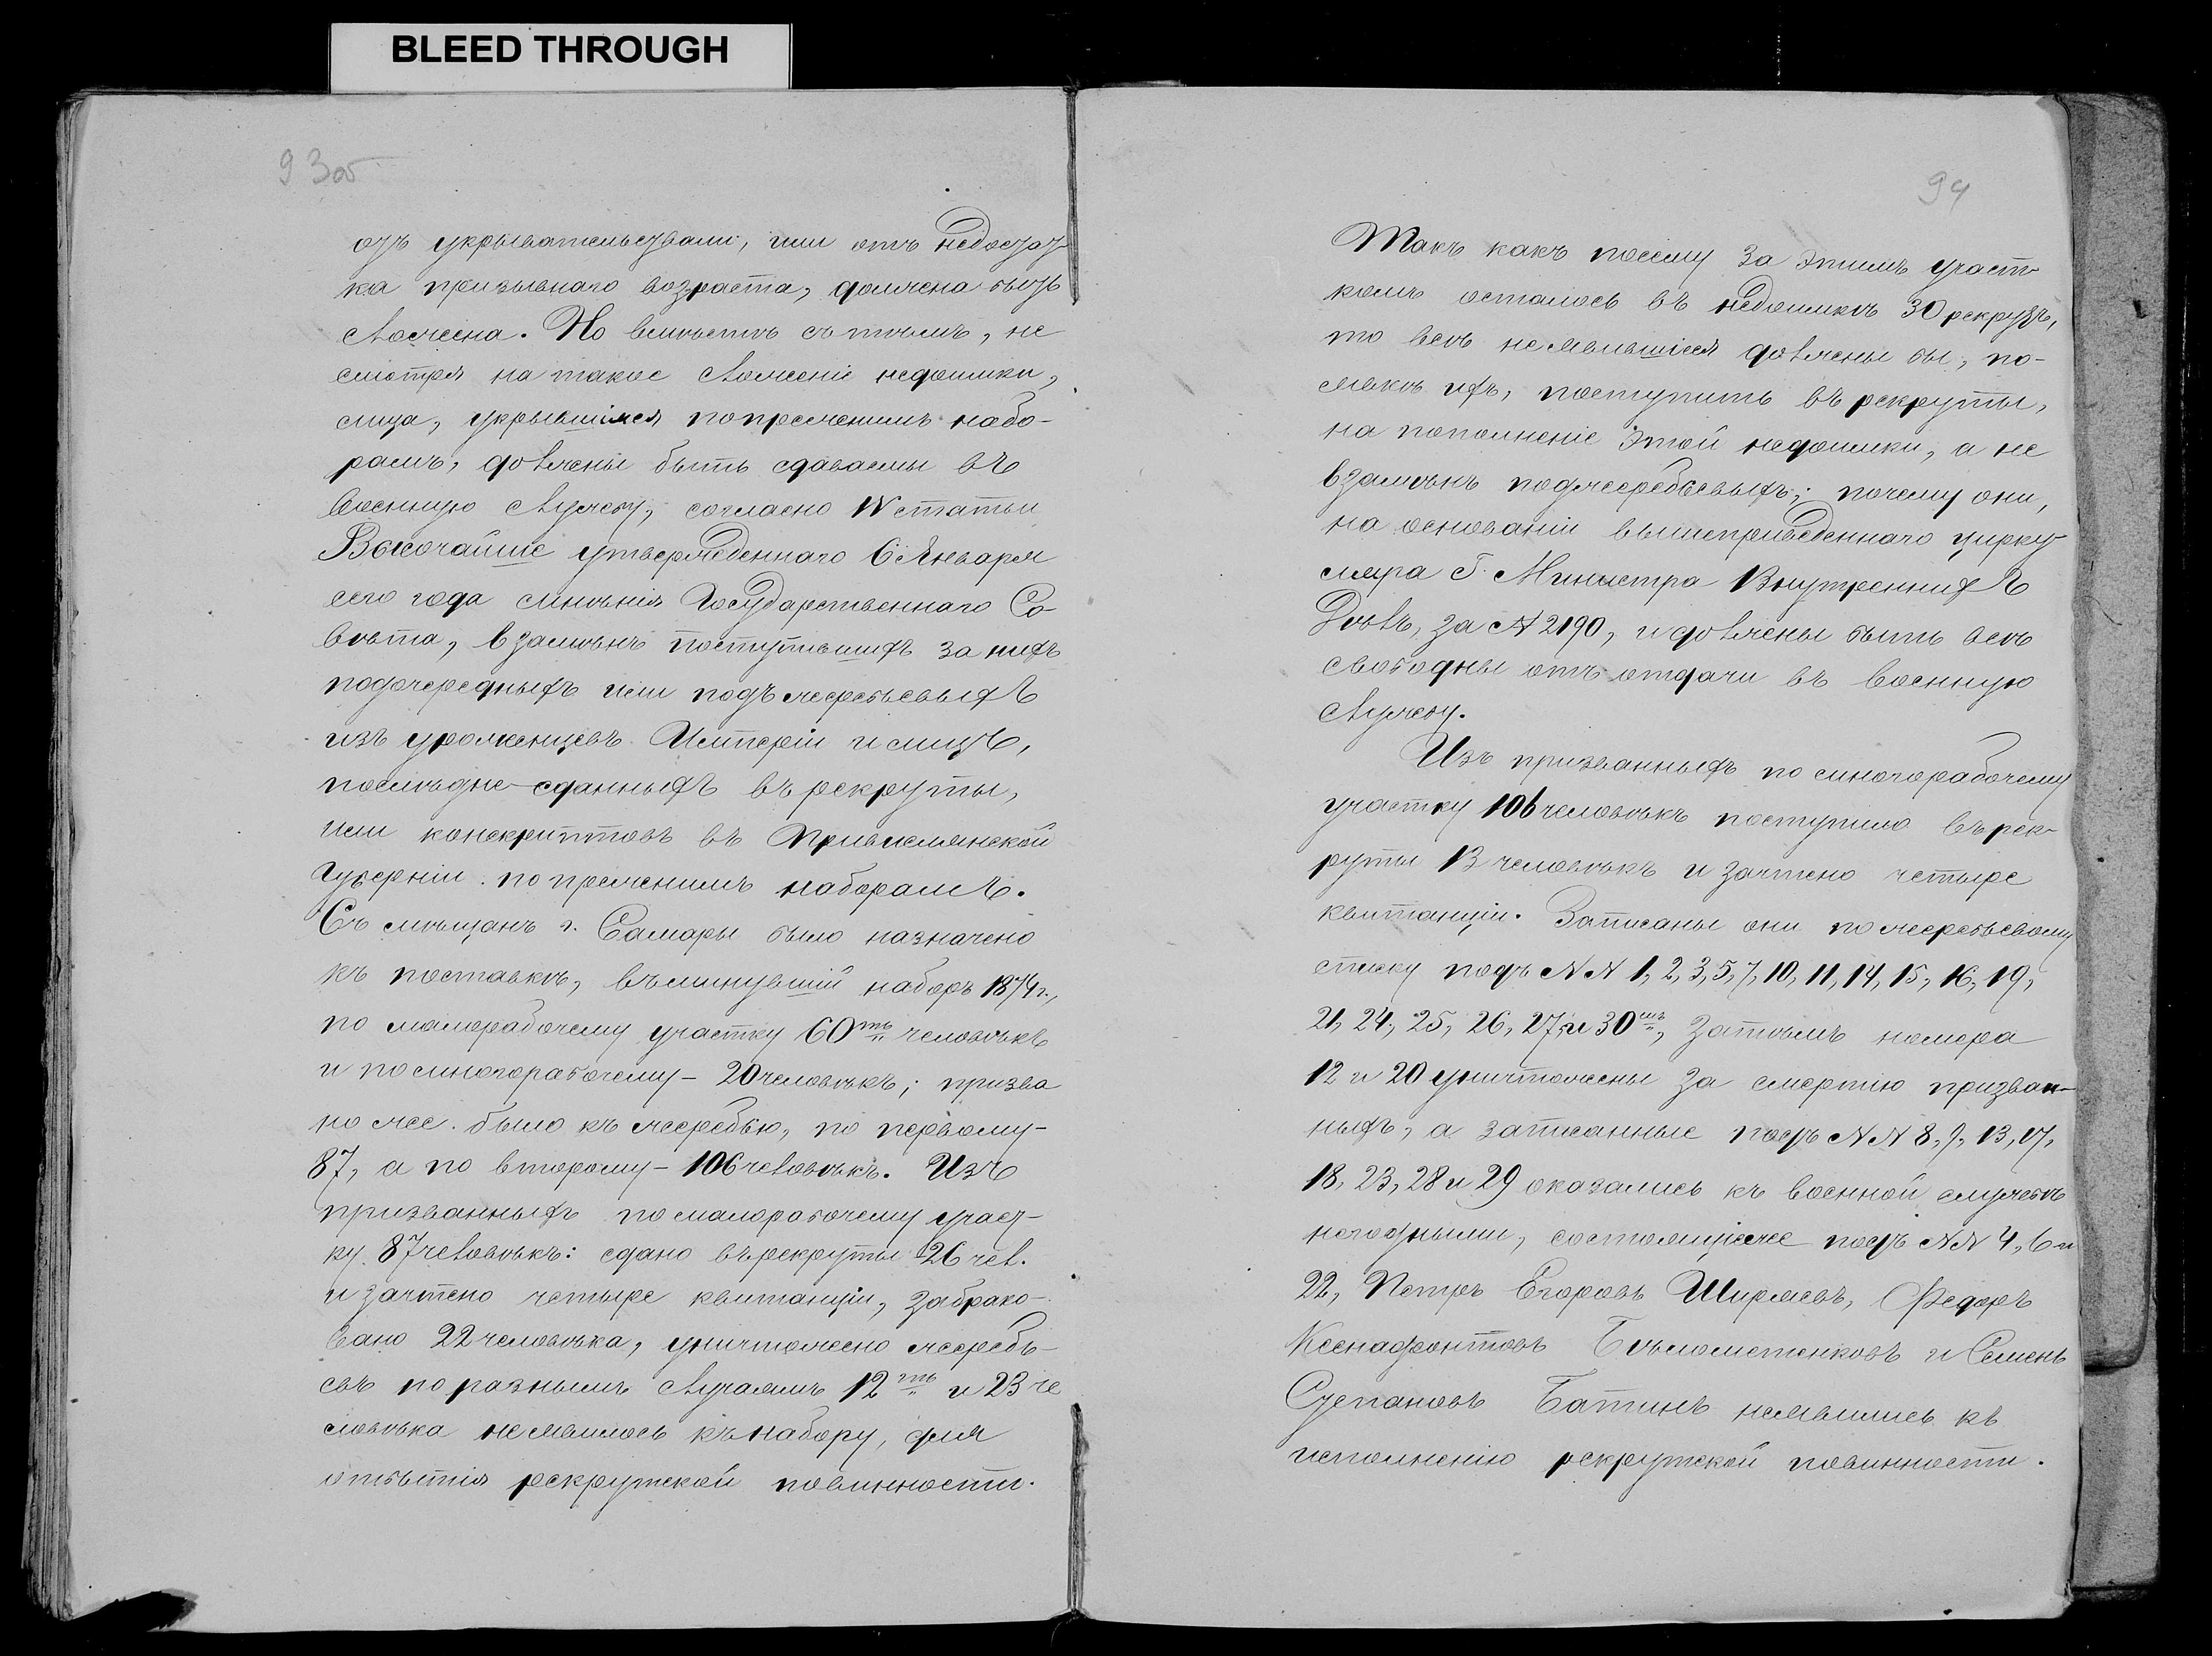 BLEED THROUGH
93об
отъ укрывательствами, или отъ недостат
ка призывнаго возраста, должна быть
сложена. Но вмѣстѣ съ тѣмъ, не
смотря на такое сложеніе недоимки,
лица, укрывшіяся по прежнимъ набо-
рамъ, должны быть сдаваемы въ
военную службу, согласно IV статьи
Высочайше утвержденнаго 6 Января
сего года мнѣнія Государственнаго Со-
вѣта, взамѣнъ поступившихъ за нихъ
подочередныхъ или подъжеребьевыхъ
изъ уроженцевъ Имперіи и лицъ,
послѣдне-сданныхъ въ рекруты,
или конскриптовъ въ Привислянской
Губерніи по прежнимъ наборамъ.
Съ мѣщанъ г. Самары было назначено
къ поставкѣ, въ минувшій наборъ 1874 г.,
по малорабочему участку 60ть человѣкъ
и по многорабочему - 20 человѣкъ; призва
но же было къ жеребью, по первому -
87, а по второму - 106 человѣкъ. Изъ
призванныхъ по малорабочему учает-
ку 87 человѣкъ: сдано въ рекруты 26 чел.
и зачтено четыре квитанціи, забрако-
вано 22 человѣка, уничтожено жеребь-
евъ по разнымъ случаямъ 12ть и 23 че
ловѣка не явилось къ набору, для
отбытія рекрутской повинности.
94
Такъ какъ посему за этимъ участ
комъ осталось въ недоимкѣ 30 рекрутъ,
то всѣ неявившіеся должны бы, по-
явкѣ ихъ, поступить въ рекруты,
на пополненіе этой недоимки, а не
взамѣнъ поджеребьевыхъ; почему они,
на основаніи вышеприведеннаго цирку
ляра Г. Министра Внутреннихъ
Дѣлъ, за № 2190, и должны быть всѣ
свободны отъ отдачи въ военную
службу.
Изъ призванныхъ по многорабочему
участку 106 человѣкъ поступило въ рек-
руты 13 человѣкъ и зачтено четыре
квитанціи. Записаны они по жеребьевому
списку подъ №№ 1, 2, 3, 5, 7, 10, 11, 14, 15, 16, 19,
21, 24, 25, 26, 27, и 30мъ, затѣмъ номера
12 и 20 уничтожены за смертію призван-
ныхъ, а записанные подъ №№ 8, 9, 13, 17,
18, 23, 28 и 29 оказались къ военной службѣ
негодными, состоящіе же подъ №№ 4, 6 и
22, Петръ Егоровъ Ширяевъ, Федоръ
Ксенафонтовъ Бѣлометенковъ и Семенъ
Степановъ Батинъ неявились къ
исполненію рекрутской повинности.